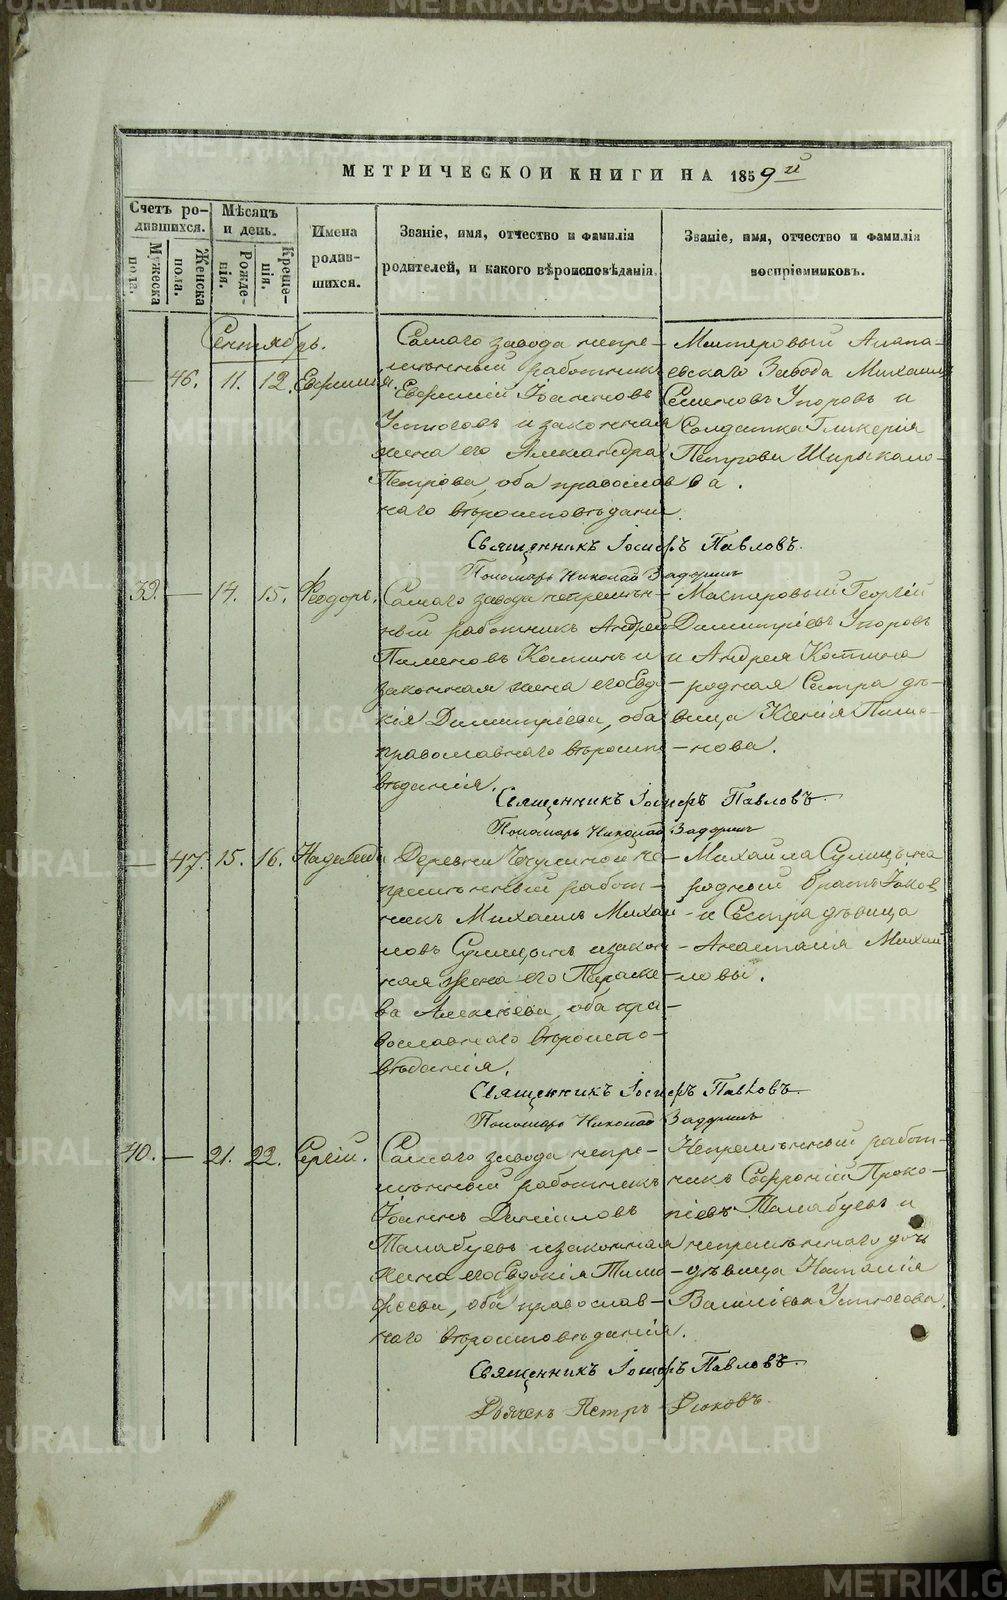 МЕТРИЧЕСКОЙ КНИГИ НА 1859й
Счетъ ро-
дившихся.
Мужеска
пола.
Женска
пола.
Мѣсяцъ
и день.
Рожде-
нія.
Креще-
нія.
Имена
родив-
шихся.
Званіе, имя, отчество и фамилія
родителей, и какого вѣроисповѣданія.
Званіе, имя, отчество и фамилія
воспріемниковъ.
Сентябрь.
— 46. 11. 12.
Самаго завода непре-
мѣнный работникъ
Евфимій Іоанновъ
Устюговъ и законная
жена его Александра
Петрова, оба православ
наго вѣроисповѣданія.
Мастеровый Алапа-
евскаго Завода Михаилъ
Семеновъ Упоровъ и
Солдатка Гликерия
Петрова Ширыкало-
ва.
Священникъ Іосифъ Павловъ.
Пономарь Николай Задоринъ
39. — 14. 15. Феодоръ.
Самаго завода непремѣн-
ный работникъ Андрей
Пименовъ Костинъ и
законная жена его Евдо-
кія Димитріева, оба
православнаго вѣроиспо-
вѣданія.
Мастеровый Георгій
Димитріевъ Упоровъ
и Андрея Костина
родная Сестра дѣ-
вица Ксенія Пиме-
нова.
Священникъ Іосифъ Павловъ
Пономарь Николай Задоринъ
— 47. 15. 16. Надежда
Деревни не-
премѣнный работ-
никъ Михаилъ Михай
ловъ и закон
ная жена его Параске-
ва Алексѣева, оба пра-
вославнаго вѣроиспо-
вѣданія.
Михаила
родный братъ Іаков
и Сестра дѣвица
Анастасія Михай
ловы.
Священникъ Іосифъ Павловъ
Пономарь Николай Задоринъ
40. — 21. 22. Сергій.
Самаго завода непре-
мѣнный работникъ
Іоаннъ Даніиловъ
Талабуевъ и законная
жена его Евдокія Тимо-
феева, оба православ-
наго вѣроисповѣданія.
Непремѣнный работ-
никъ Софроній Проко-
піевъ Талабуевъ и
непремѣннаго дочь
дѣвица Наталія
Василіева Устюгова.
Священникъ Іосифъ Павловъ
Дьячекъ Петръ
METRIKI.GASO-URAL.RU